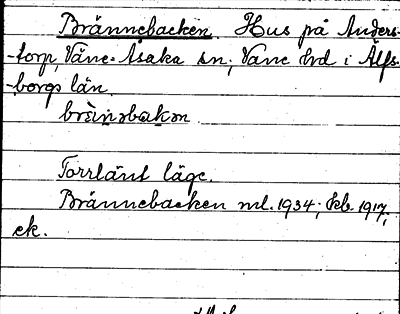 Brännebacken. Hus på Anders-
-torp, Väne-Åsaka sn; Väne hd i Älfs-
-borgs län.
brän̂əbakən
Torrlänt läge.
Brännebacken ml. 1934; kb. 1917;
ek.